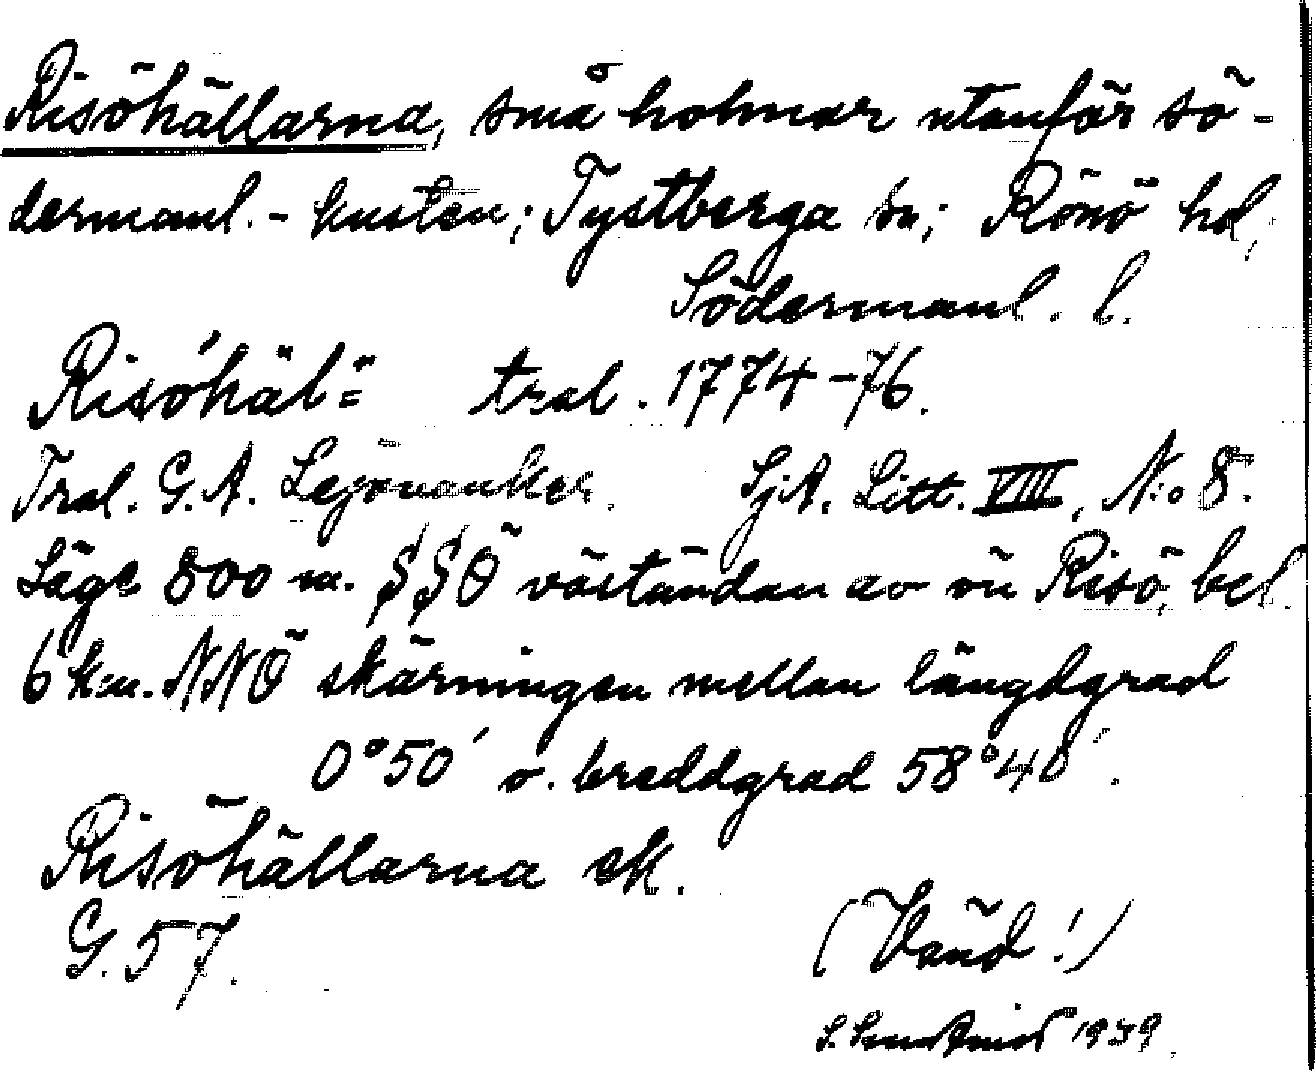 Risöhällarna, små holmar utanför sö-
dermanl.-kusten; Tystberga sn; Rönö hd,
Södermanl. l.
Risöhäl⸗ tral. 1774-76.
Tral. G. A. Lejonanker. Sj.A. Litt. VIII, N:o 8.
Läge 800 m. SSÖ väständan av ön Risö, bel.
6 km. NNÖ skärningen mellan längdgrad
0°50′ o. breddgrad 58°40′.
Risöhällarna sk.
G. 57.
(Vänd!)
S. 1939.